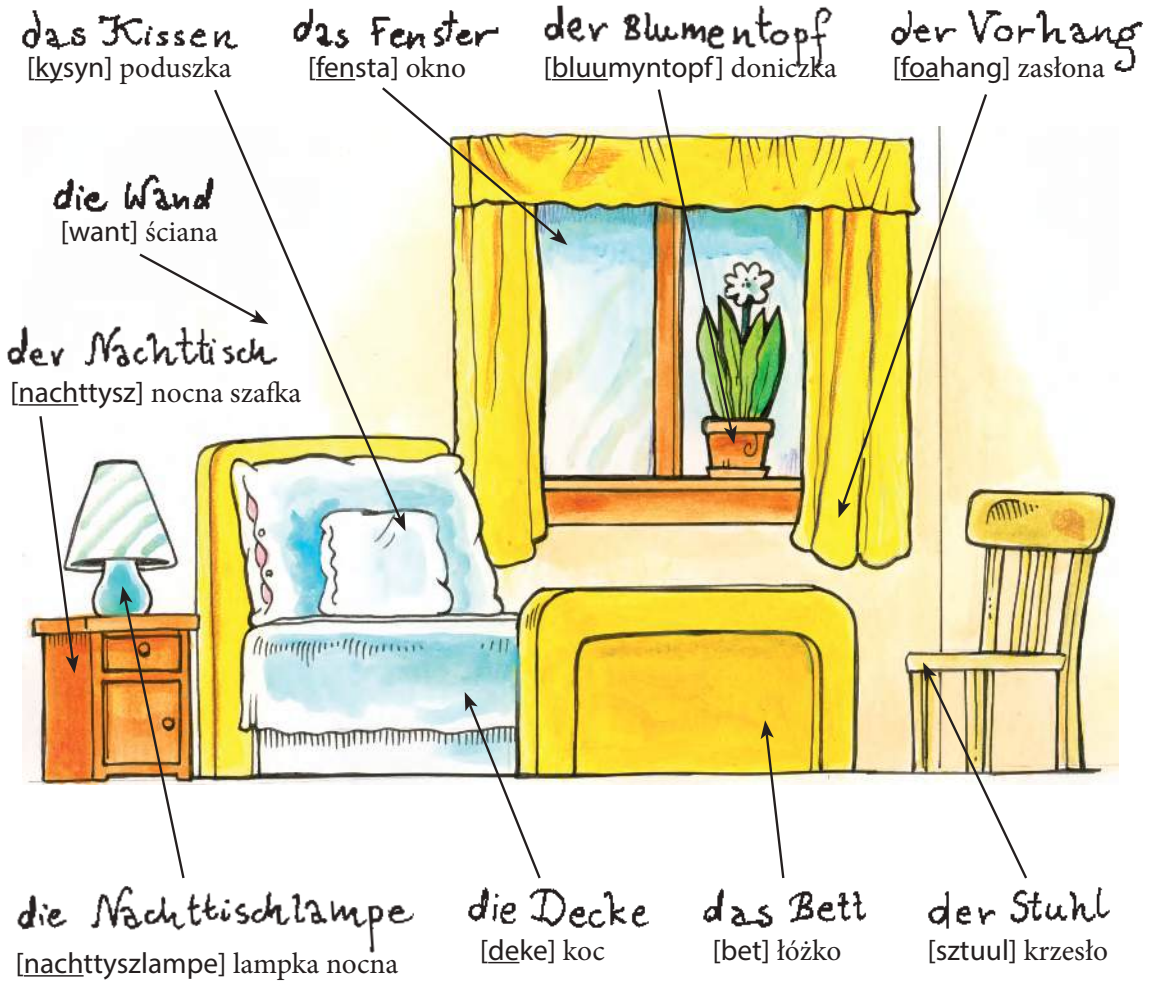 das Kissen
[kysyn] poduszka
das Fenster
[fensta] okno
der Blumentopf
[bluumyntopf] doniczka
der Vorhang
[foahang] zasłona
die Wand
[want] ściana
der Nachttisch
[nachttysz] nocna szafka
die Nachttischlampe
[nachttyszlampe] lampka nocna
die Decke
[deke] koc
das Bett
[bet] łóżko
der Stuhl
[sztuul] krzesło